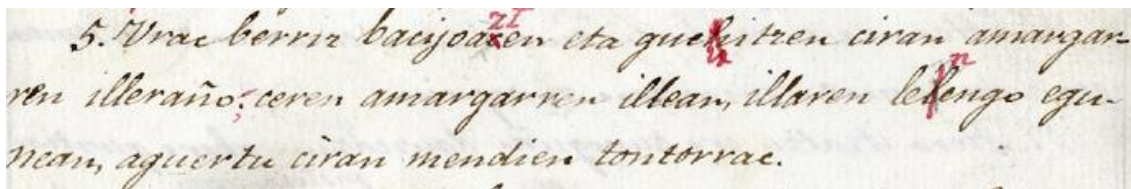 zi
5. Urac berriz bacijoacen eta guchitzen ciran amargar-
n
ren illeraño; ceren amargarren illean, illaren lelengo egu-
nean, aguertu ciran mendien tontorrac.